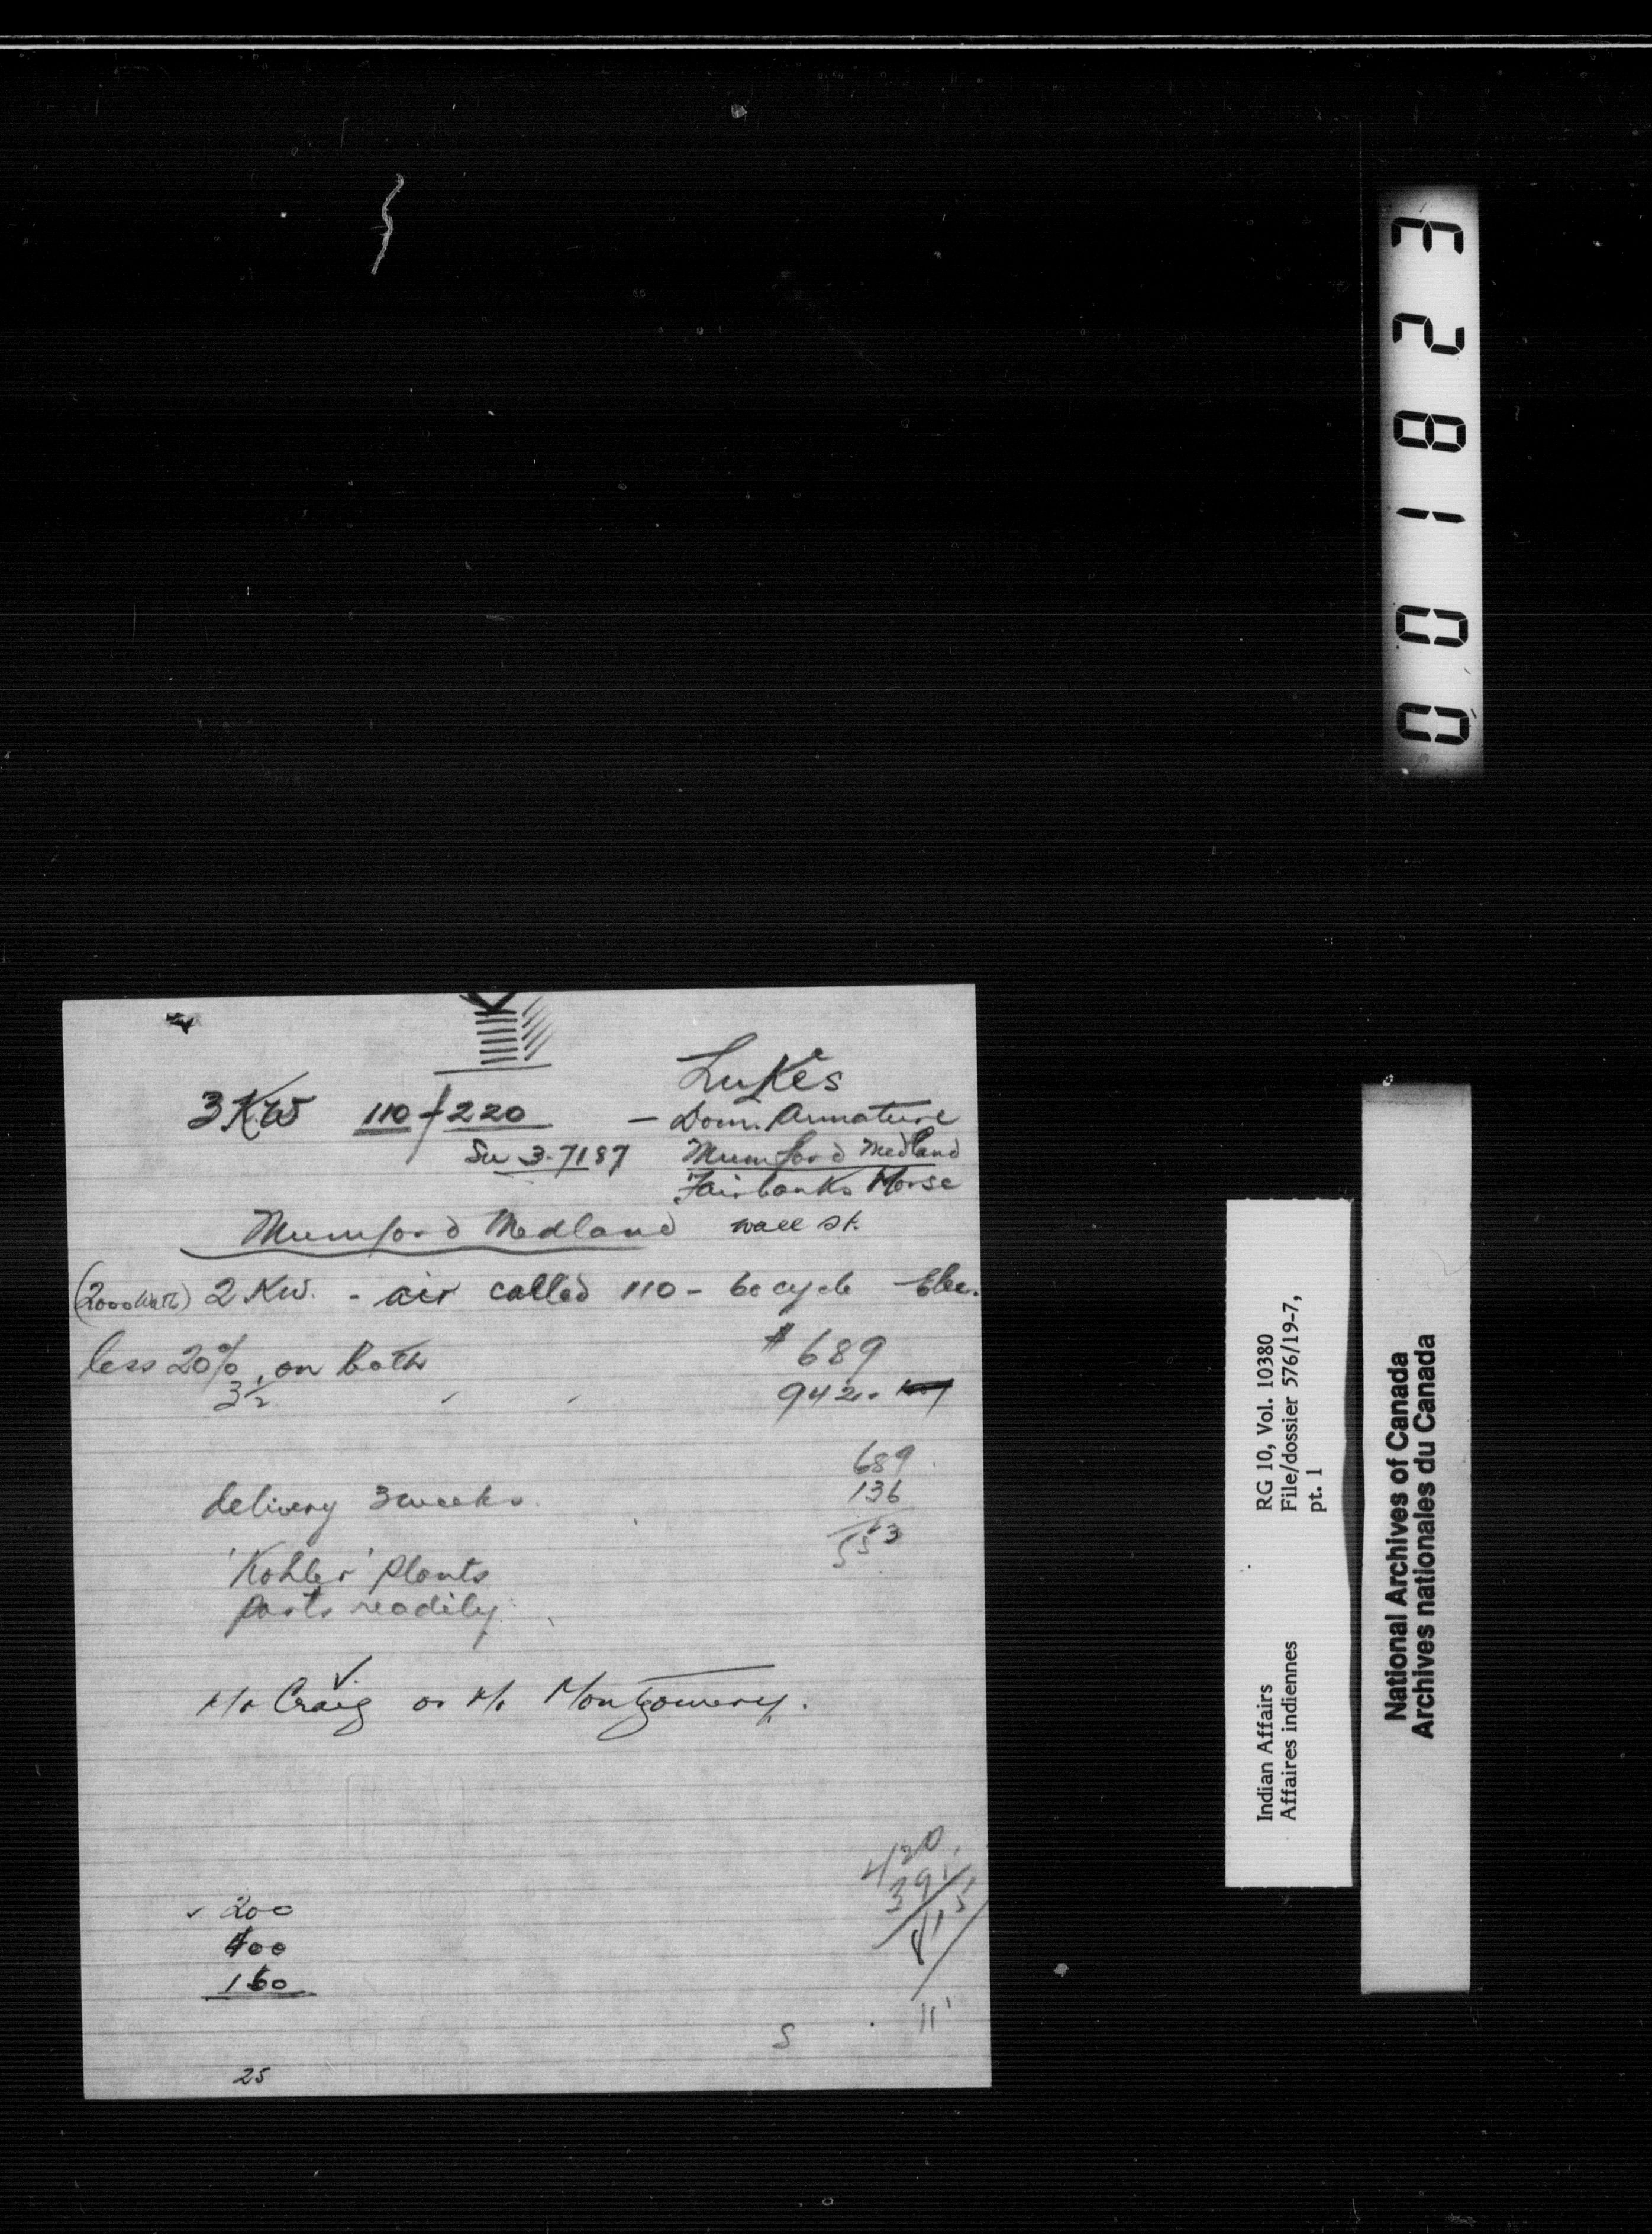 Lukes
3 KW 110/220 - Dom. Armature
Su 3-7187 Mumford Medland
Fairbanks Morse
Mumford Medland Wall St.
(2000 Watt) 2 KW. - air called 110 - 60 cycle - Elec.
less 20% on both $689
3½ " " 942.
689
136
553
delivery 3 weeks.
'Kohler' Plants
parts readily.
Mr Craig or Mr Montgomery.
420
391
200
400
160
11'
S
25
001823
Indian Affairs RG 10, Vol. 10380
Affaires indiennes File/dossier 576/19-7,
pt. 1
National Archives of Canada
Archives nationales du Canada